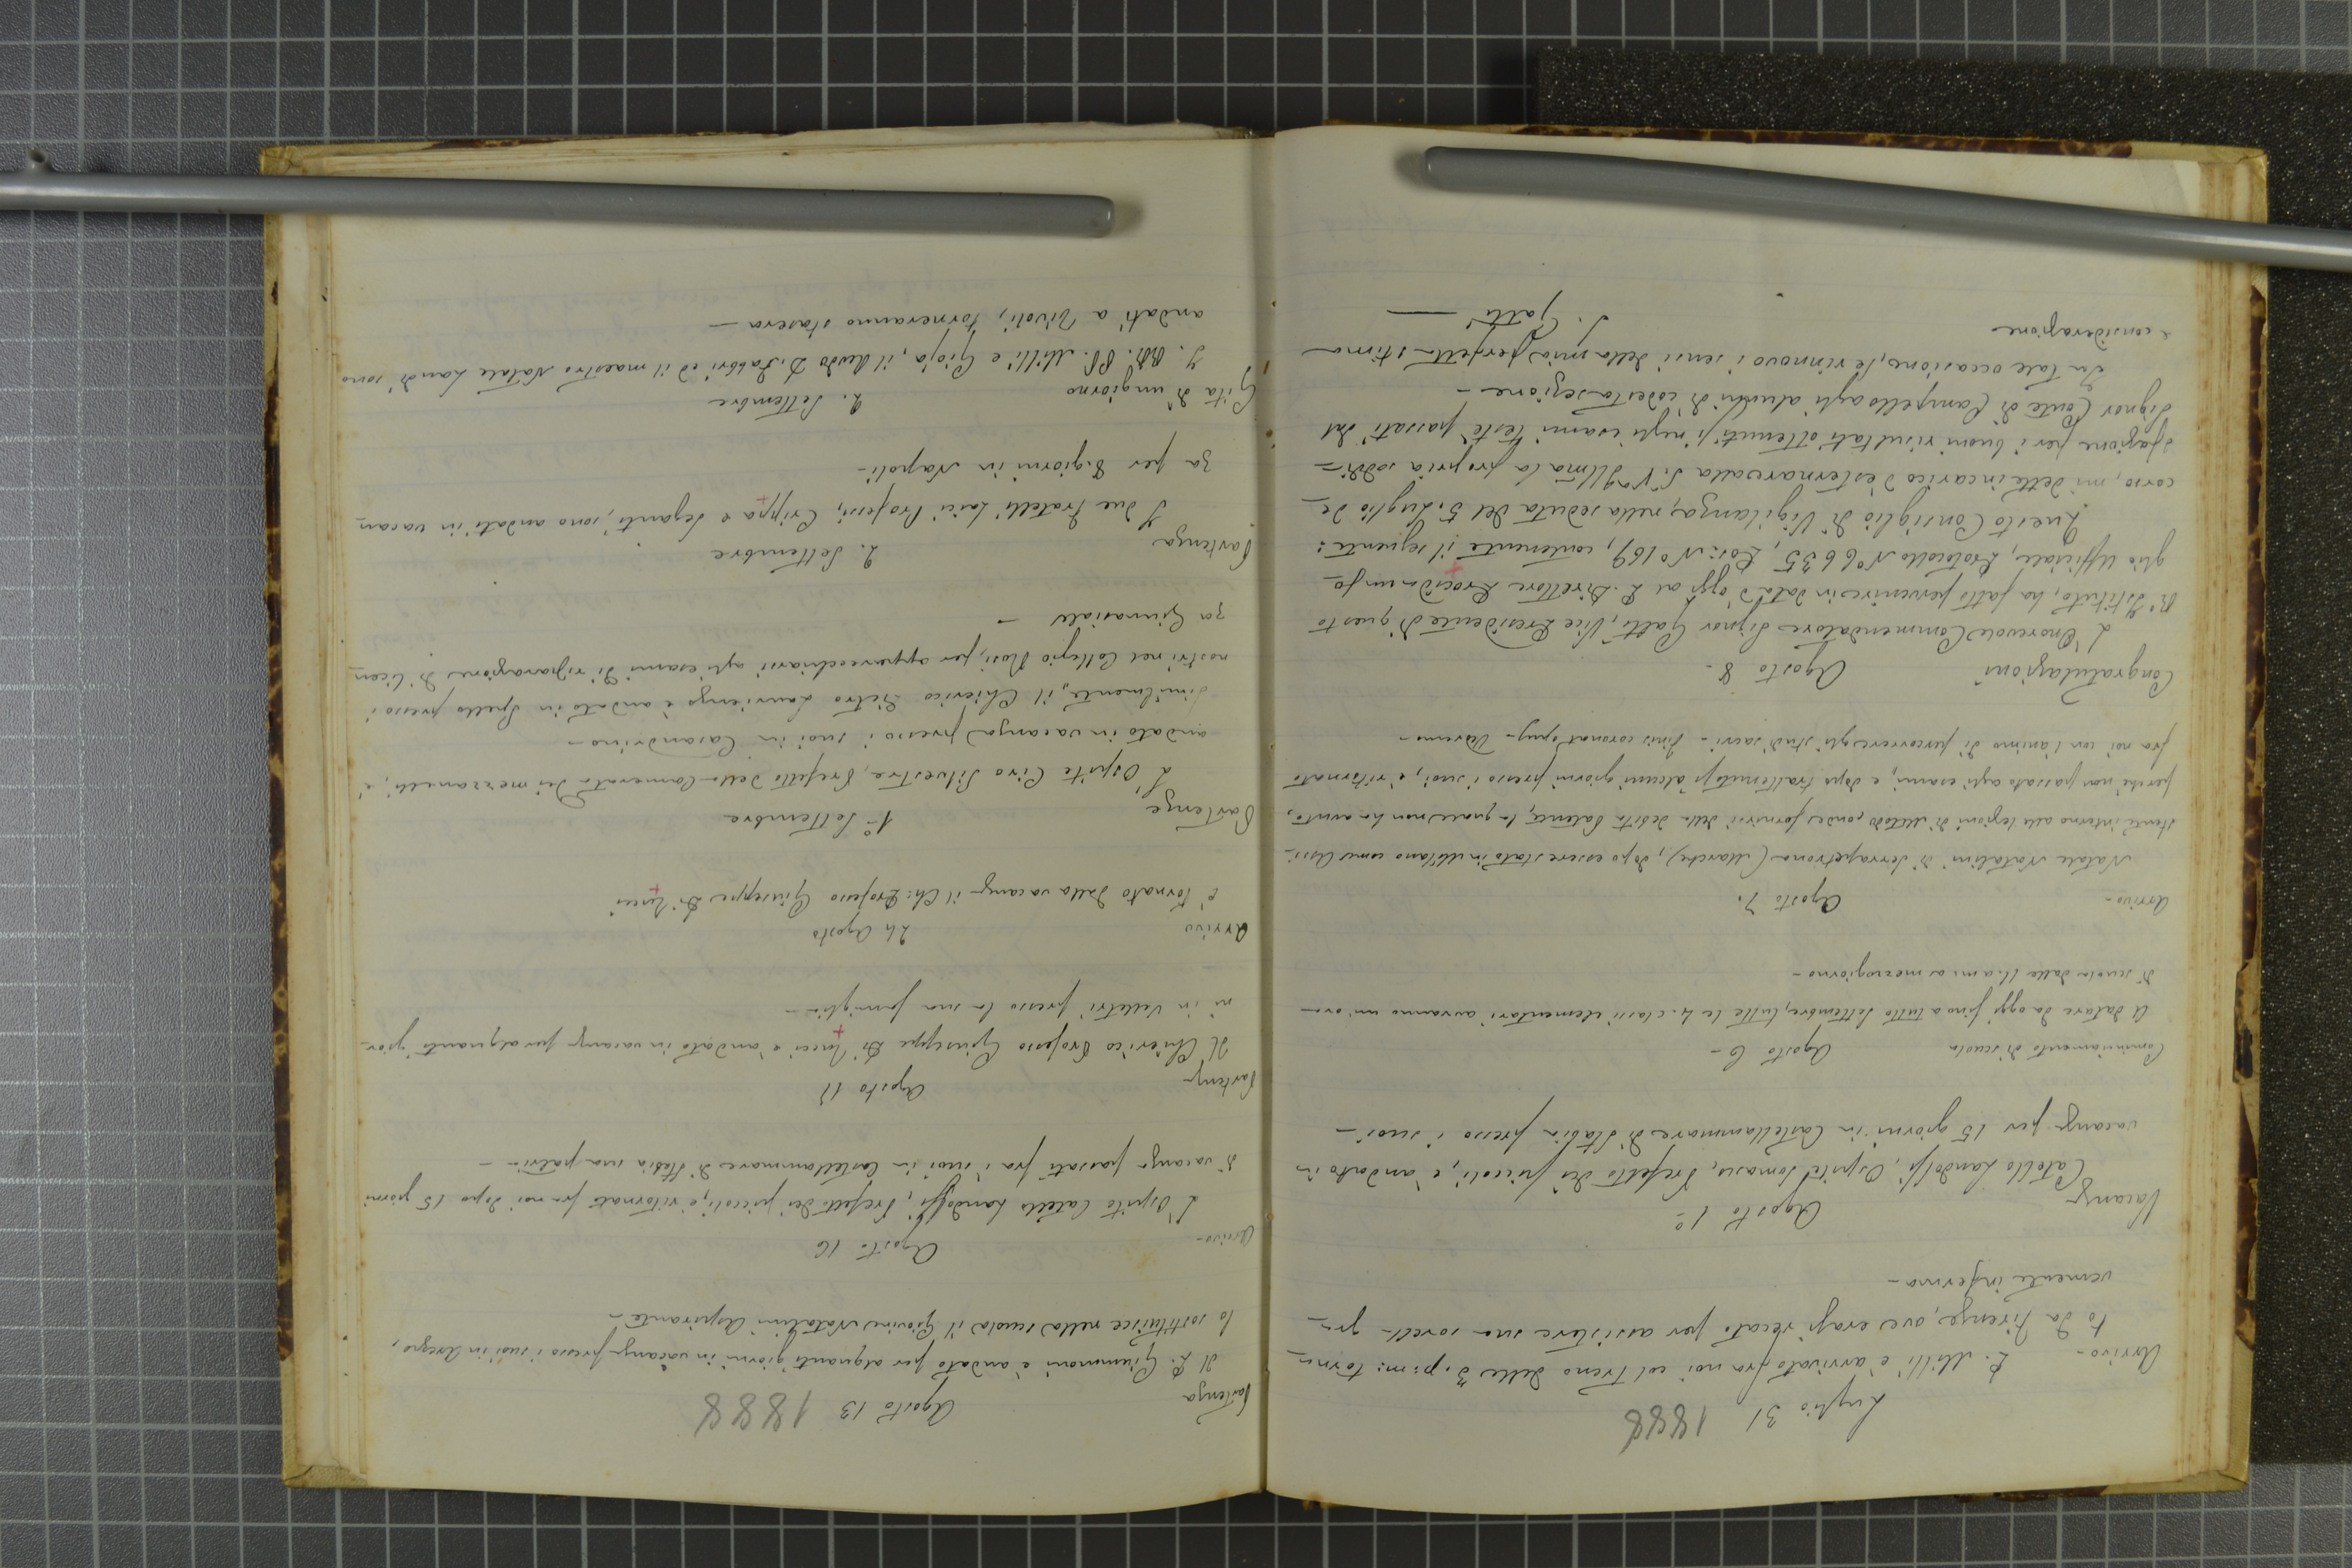 Luglio 31 1888
Arrivo-
P. Milli è arrivato fra noi col treno delle 3. p: m: torna-
to da Firenze, ove erasi recato per assistere sua sorella gra-
vemente inferma-
Agosto 1°-
Vacanza
Catello Landolfi, Ospite Somasco, Prefetto dei piccoli, è andato in
vacanza per 15 giorni in Castellammare di Stabia presso i suoi-
Cominciamento di scuola Agosto 6-
A datare da oggi fino a tutto Settembre, tutte le 4. classi elementari avranno un'ora
di scuola dalle 11. a m. a mezzogiorno-
Arrivo- Agosto 7.
Natale Natalini di Serrapetrona (Marche), dopo essere stato in Milano come Assi-
stente interno alle lezioni di Metodo, onde fornirsi della debita Patente, la quale non ha avuto,
perchè non passato agli esami, e dopo trattenutosi alcuni giorni presso i suoi, è ritornato
fra noi con l'animo di percorrere gli studi sacri- Finis coronat opus- Vedremo-
Congratulazioni Agosto 8-
L'Onorevole Commendatore Signor Gatti, Vice Presidente di questo
R° Istituto, ha fatto pervenire in data d'oggi al P. Direttore Procida un fo-
glio Ufficiale, Protocollo N° 6635, Pos: N° 169, contenente il seguente:
Questo Consiglio di Vigilanza, nella seduta del 5. Luglio de
corso, mi dette incarico d'esternare alla S. V. Illma la propria soddi-
sfazione per i buoni risultati ottenutisi negli esami testè passati dal
Signor Conte di Campello agli alunni di codesta sezione-
In tale occasione, Le rinnovo i sensi della mia perfetta stima
e considerazione
Gatti
Partenza Agosto 13 1888
Il P. Giummoni è andato per alquanti giorni in vacanza presso i suoi in Arezzo,
lo sostituisce nella scuola il Giovine Natalini Aspirante-
Arrivo- Agosto 16
L'Ospite Catello Landolfi, Prefetto dei piccoli, è ritornato fra noi dopo 15 giorni
di vacanza passati fra i suoi in Castellammare di Stabia sua patria-
Partenza Agosto 17
Il Chierico Professo Giuseppe Di Tucci è andato in vacanza per alquanti gior-
ni in Velletri presso la sua famiglia-
Arrivo 24 Agosto
È tornato dalla vacanza il Ch: Professo Giuseppe Di Tucci
Partenze 1° Settembre
L'Ospite Ciro Silvestre, Prefetto della Camerata dei mezzanelli, è
andato in vacanza presso i suoi in Casandrino-
Similmente, il Chierico Pietro Lauriengo è andato in Spello presso i
nostri nel Collegio Rosi, per apparecchiarsi agli esami di riparazione di Licen-
za Ginnasiale-
Partenza 2. Settembre
I due Fratelli Laici Professi, Crippa e Leganti, sono andati in vacan-
za per 8 giorni in Napoli-
Gita di un giorno 2. Settembre
I RR. PP. Milli e Gioja, il Revdo D. Fabbri ed il maestro Natale Landi sono
andati a Tivoli, torneranno stasera-